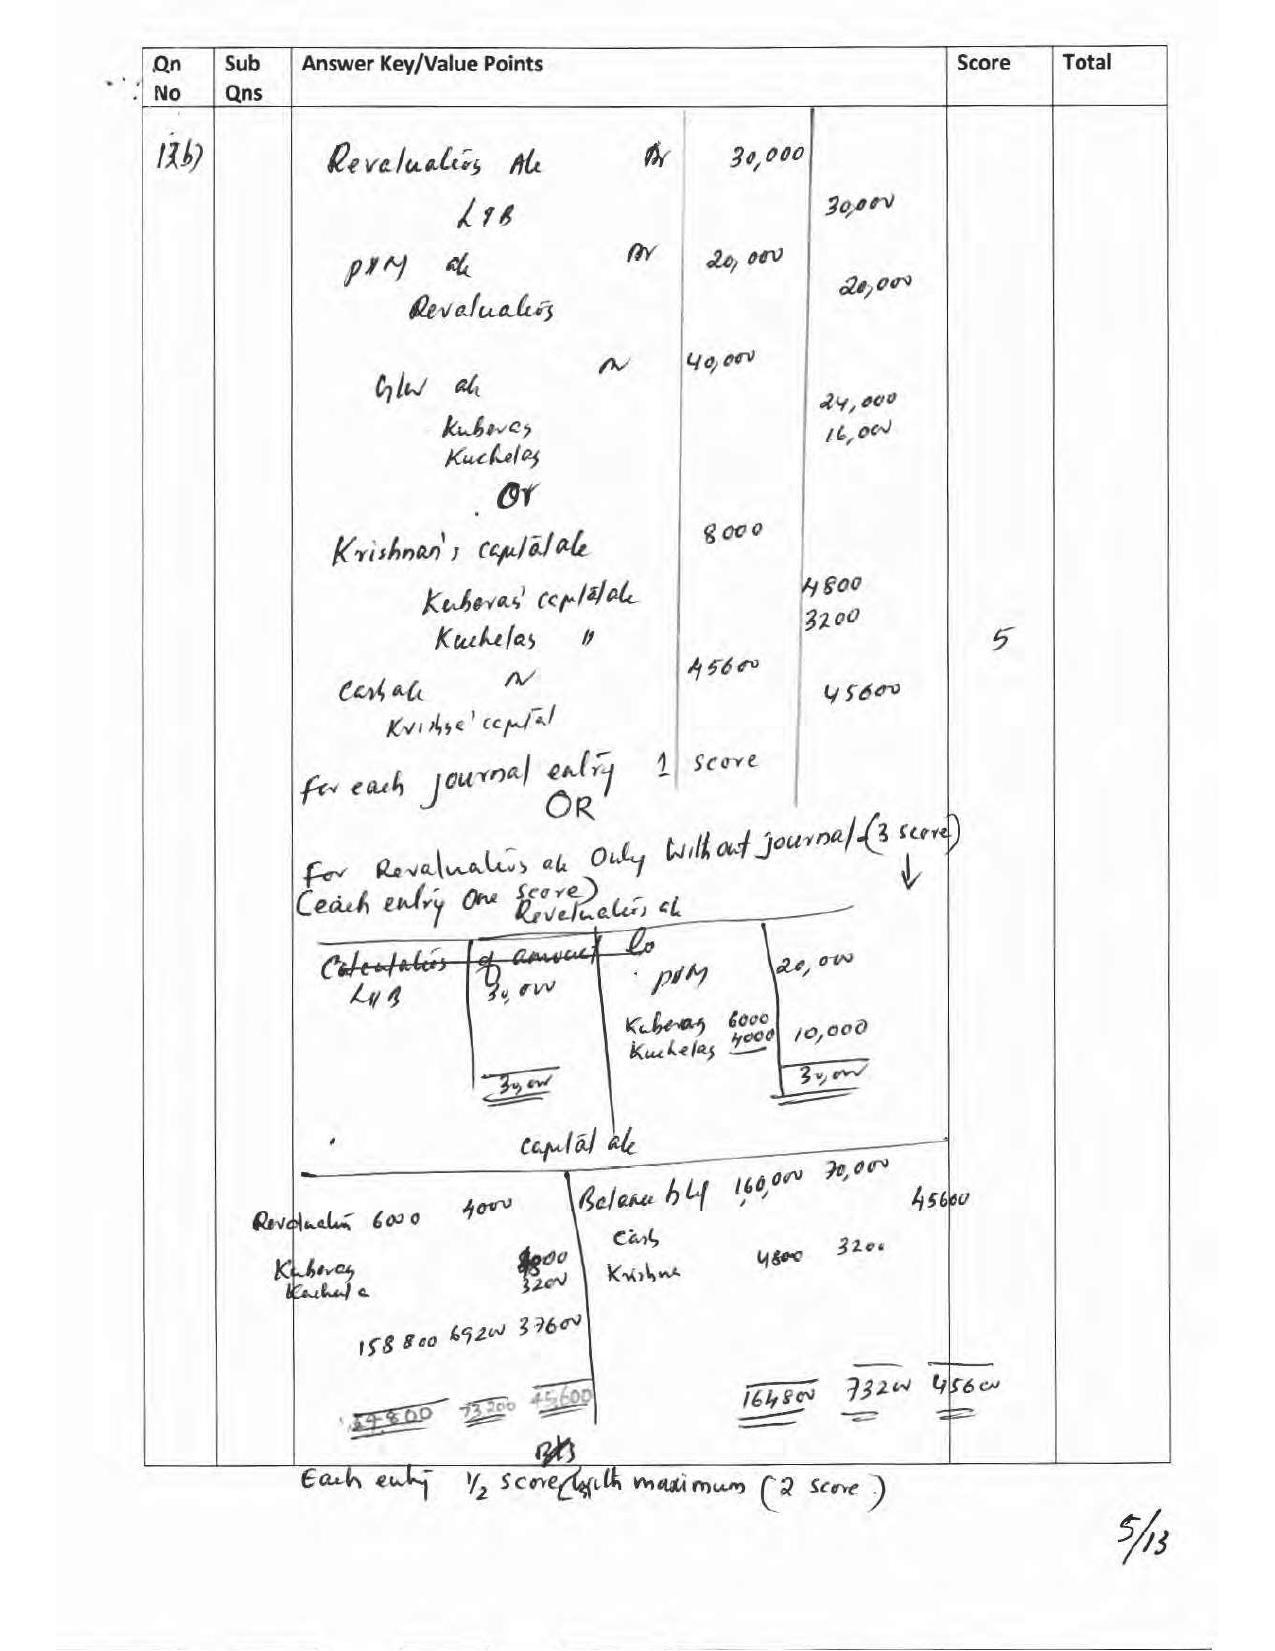 Qn No Sub Qns Answer Key/Value Points Score Total
13(b)
Revaluation A/c Dr 30,000
L&B 30,000
P&M a/c Dr 20,000
Revaluation 20,000
G/w a/c Dr 40,000
Kuberas 24,000
Kuchelas 16,000
Or
Krishnan's capital a/c 8000
Kuberas' capital a/c 4800
Kuchelas " 3200
5
Cash a/c Dr 45600
Krishna' capital 45600
for each journal entry 1 score
OR
For Revaluation a/c Only Without journal - (3 score)
(each entry One score)
Revaluation a/c
L&B 30,000 P&M 20,000
Kuberas 6000
Kuchelas 4000 10,000
30,000 30,000
Capital a/c
Revaluation 6000 4000 Balance b/f 1,60,000 70,000
Cash 45600
Kuberas 4800 Krishna 4800 3200
Kuchela 3200
158800 69200 37600
164800 73200 45600 164800 73200 45600
Each entry 1/2 score with maximum (2 score)
5/13